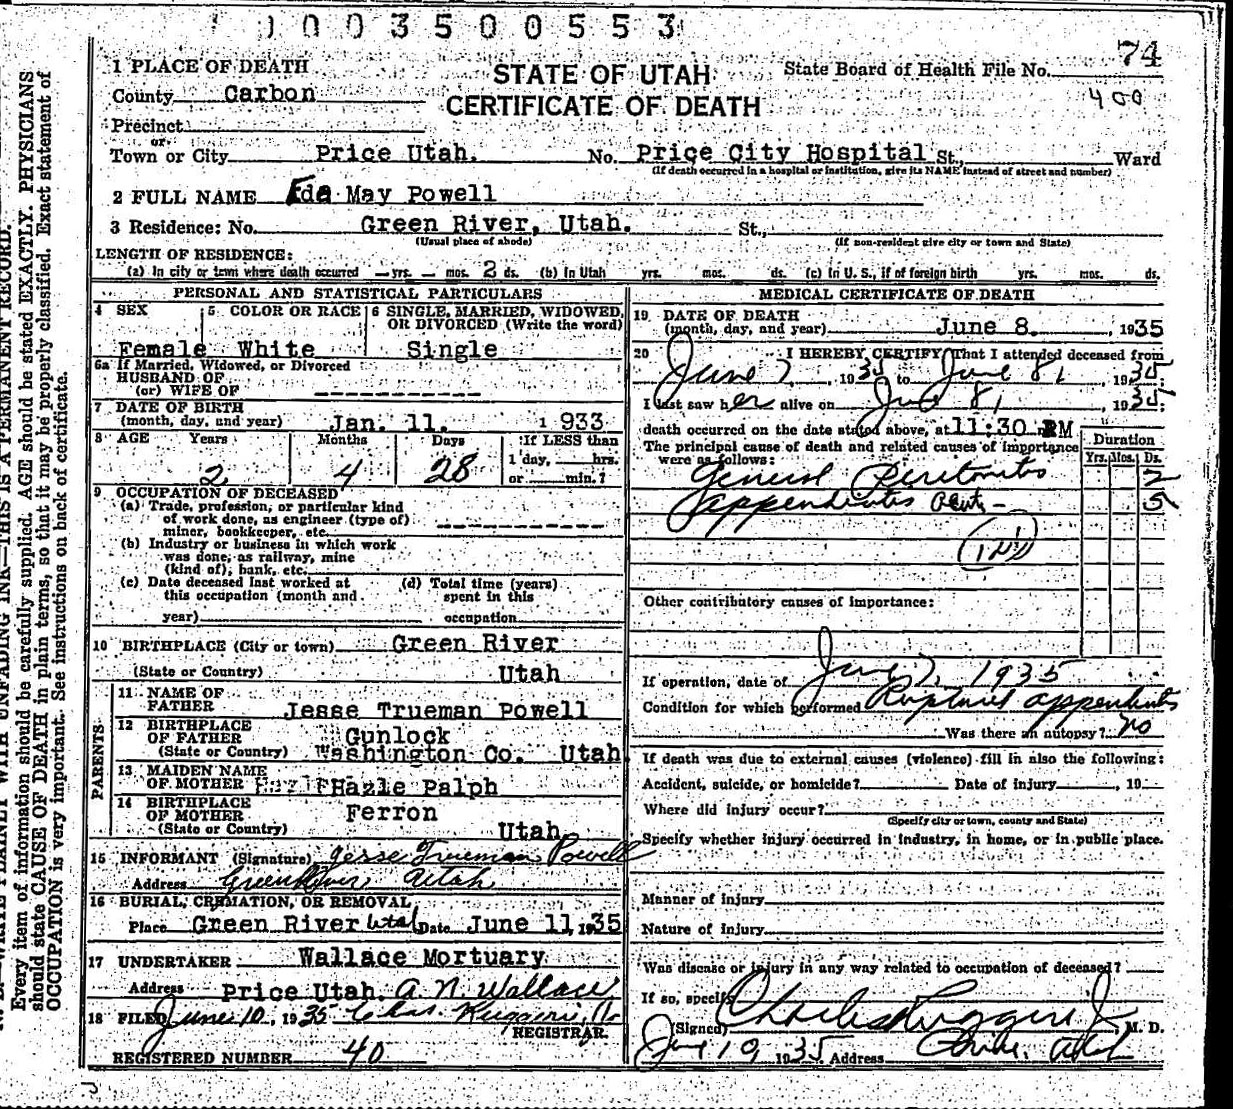 1003500553
74
400
1 PLACE OF DEATH
STATE OF UTAH
State Board of Health File No.
County Carbon
CERTIFICATE OF DEATH
Precinct
or
Town or City Price Utah. No. Price City Hospital St., Ward
(If death occurred in a hospital or institution, give its NAME instead of street and number)
2 FULL NAME Eda May Powell
3 Residence: No. Green River, Utah. St.,
(Usual place of abode) (If non-resident give city or town and State)
LENGTH OF RESIDENCE:
(a) In city or town where death occurred — yrs. — mos. 2 ds. (b) In Utah yrs. mos. ds. (c) In U. S., if of foreign birth yrs. mos. ds.
PERSONAL AND STATISTICAL PARTICULARS
4 SEX 5 COLOR OR RACE 6 SINGLE, MARRIED, WIDOWED, OR DIVORCED (Write the word)
Female White Single
6a If Married, Widowed, or Divorced
HUSBAND OF
(or) WIFE OF
7 DATE OF BIRTH
(month, day, and year) Jan. 11. 1933
8 AGE Years Months Days If LESS than
1 day, hrs.
2 4 28 or min.?
9 OCCUPATION OF DECEASED
(a) Trade, profession, or particular kind
of work done, as engineer (type of)
miner, bookkeeper, etc.
(b) Industry or business in which work
was done, as railway, mine
(kind of), bank, etc.
(c) Date deceased last worked at (d) Total time (years)
this occupation (month and spent in this
year) occupation
10 BIRTHPLACE (City or town) Green River
(State or Country) Utah
PARENTS
11 NAME OF
FATHER Jesse Trueman Powell
12 BIRTHPLACE
OF FATHER Gunlock
(State or Country) Washington Co. Utah
13 MAIDEN NAME
OF MOTHER Hazle Palph
14 BIRTHPLACE
OF MOTHER Ferron
(State or Country) Utah
15 INFORMANT (Signature) Jesse Trueman Powell
Address Green River Utah
16 BURIAL, CREMATION, OR REMOVAL
Place Green River Utah Date June 11, 1935
17 UNDERTAKER Wallace Mortuary
Address Price Utah. A. N. Wallace
18 FILED June 10, 1935 Chas. Ruggeri, Jr
REGISTRAR.
REGISTERED NUMBER 40
MEDICAL CERTIFICATE OF DEATH
19 DATE OF DEATH
(month, day, and year) June 8. , 1935
20 I HEREBY CERTIFY, That I attended deceased from
June 7, 1935 to June 8, 1935
I last saw her alive on June 8, 1935:
death occurred on the date stated above, at 11:30 PM
The principal cause of death and related causes of importance
were as follows:
Duration
Yrs. Mos. Ds.
General Peritonitis 2
appendicitis acute - 5
Other contributory causes of importance:
If operation, date of June 7, 1935
Condition for which performed Ruptured appendix
Was there an autopsy? no
If death was due to external causes (violence) fill in also the following:
Accident, suicide, or homicide? Date of injury , 19
Where did injury occur?
(Specify city or town, county and State)
Specify whether injury occurred in industry, in home, or in public place.
Manner of injury
Nature of injury
Was disease or injury in any way related to occupation of deceased?
If so, specify
(Signed) Charles Ruggeri Jr M. D.
June 10 1935 Address Price, Utah
Every item of information should be carefully supplied. AGE should be stated EXACTLY. PHYSICIANS
should state CAUSE OF DEATH in plain terms, so that it may be properly classified. Exact statement of
OCCUPATION is very important. See instructions on back of certificate.
WRITE PLAINLY WITH UNFADING INK—THIS IS A PERMANENT RECORD.